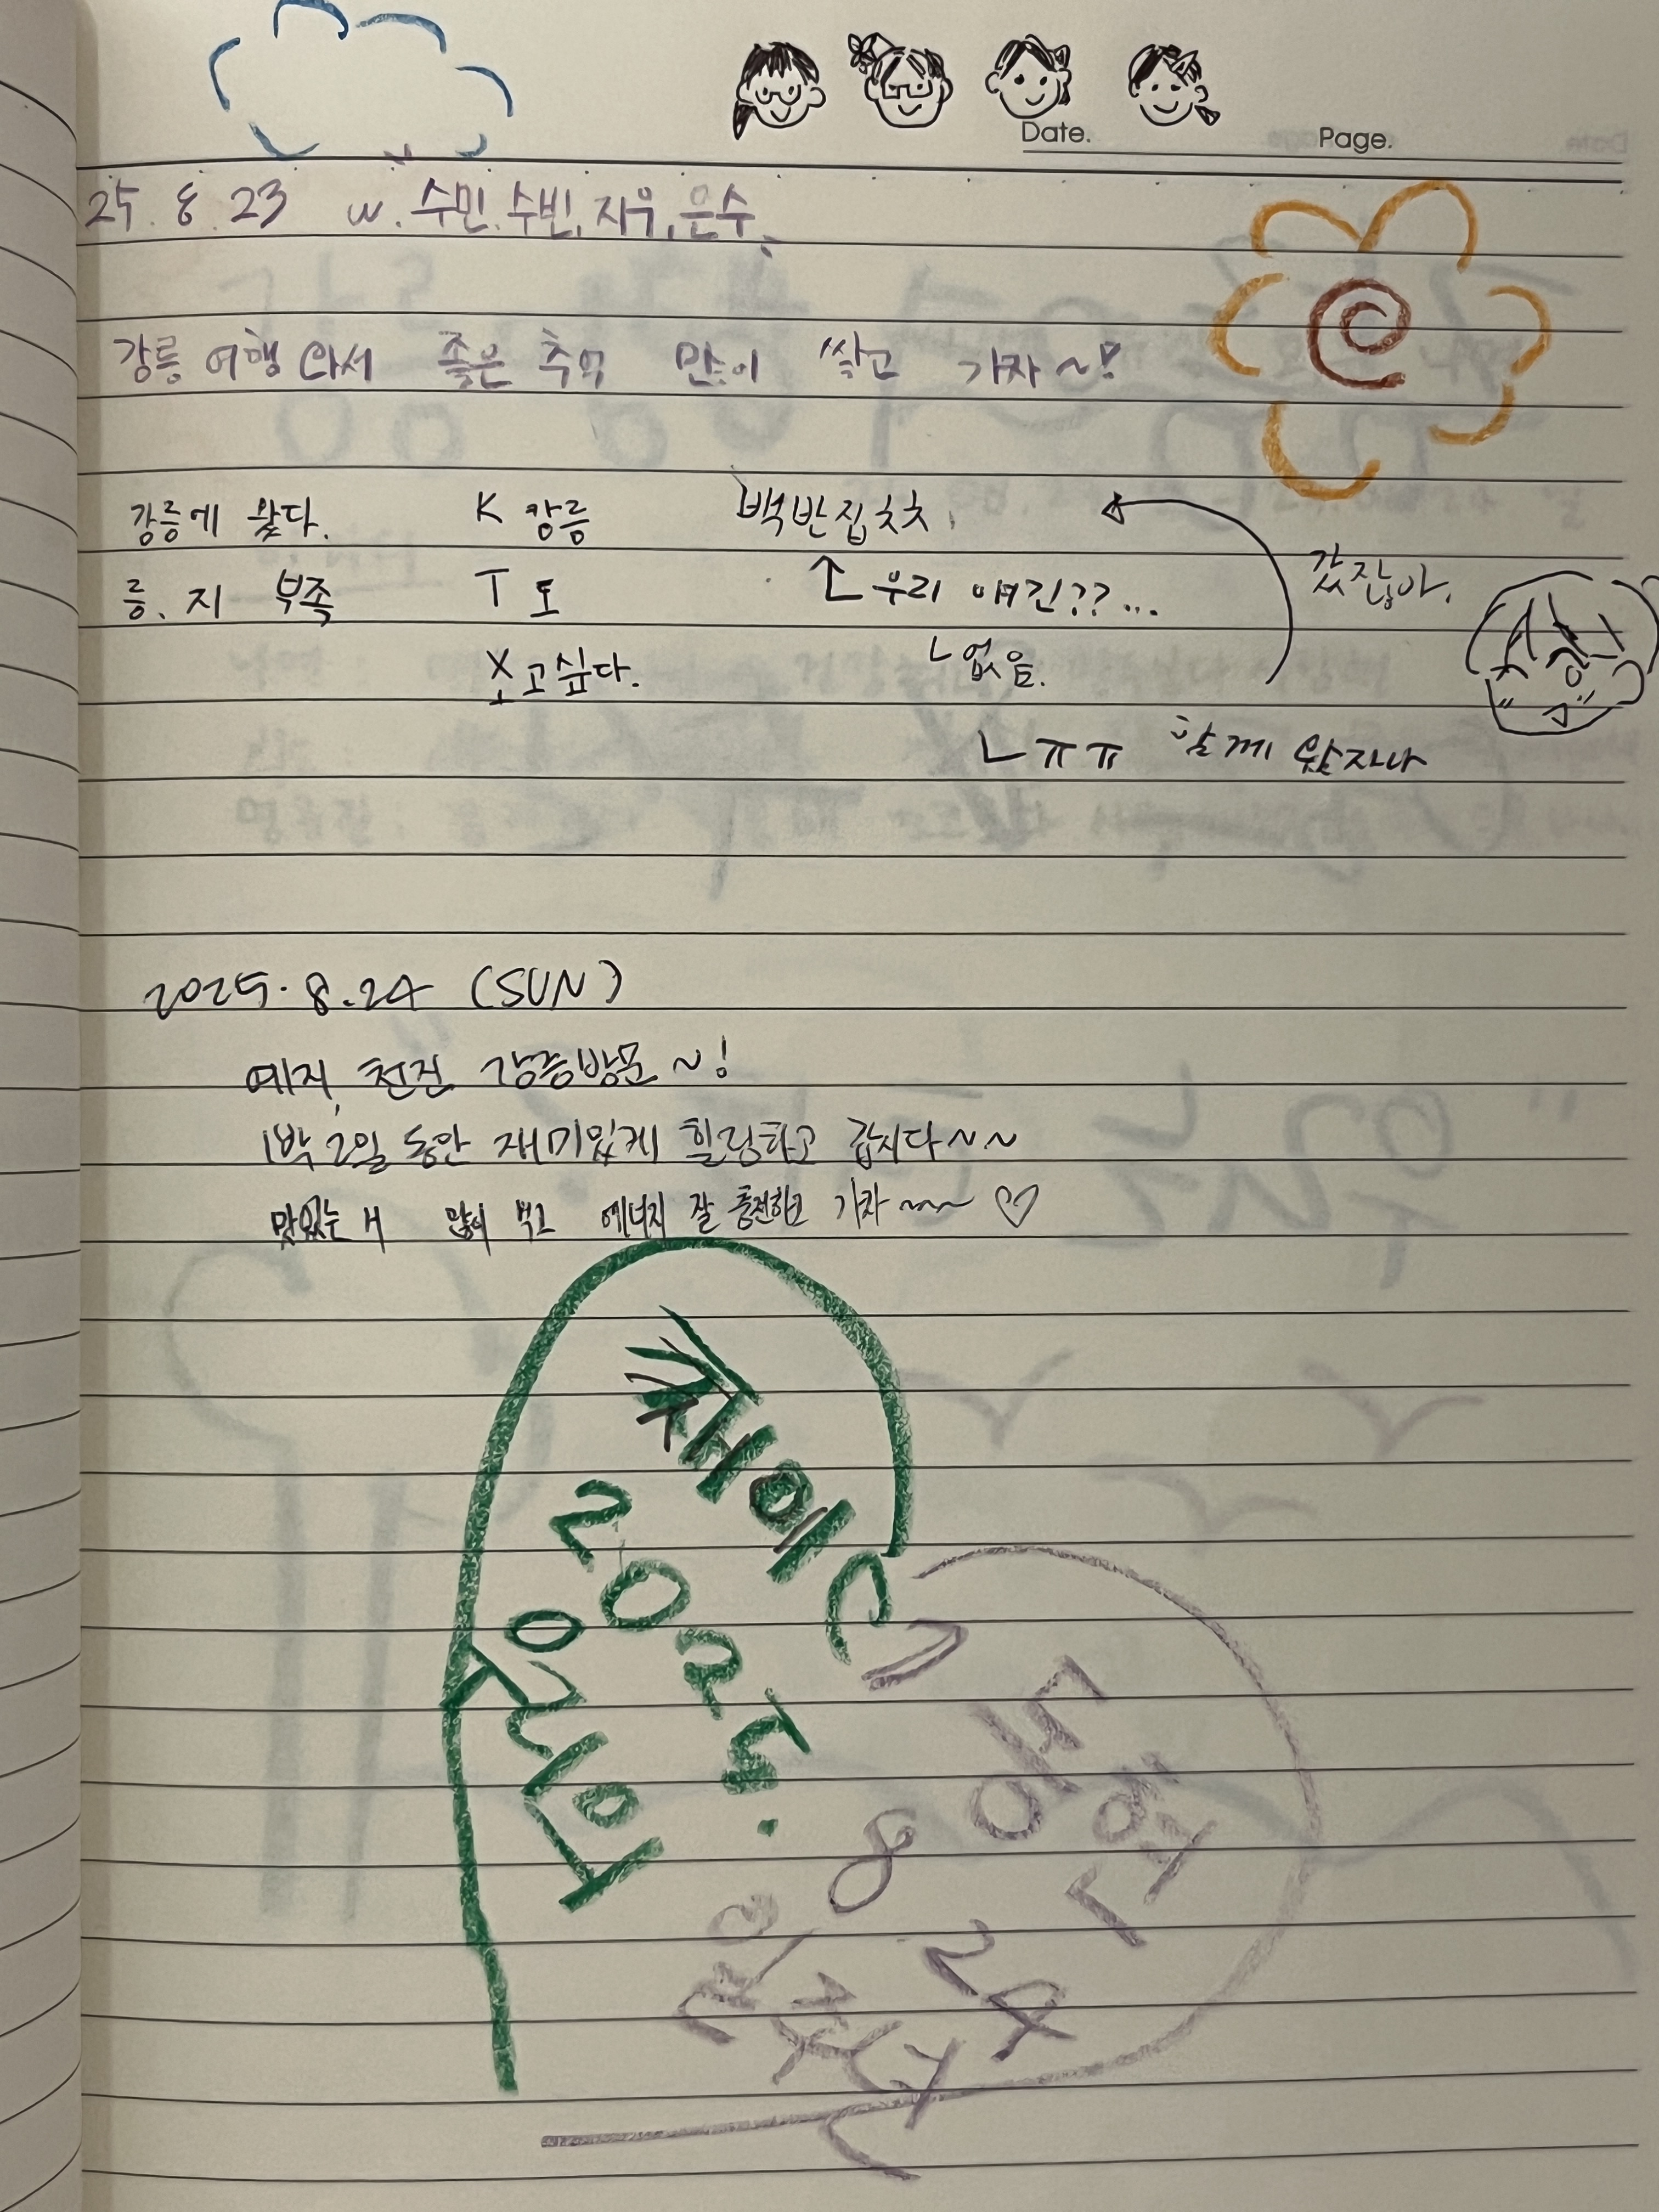 Date. Page.
25. 8. 23 w. 수민. 수빈, 지우, 은수.
강릉 여행 와서 좋은 추억 많이 쌓고 가자~!
강릉에 왔다. K 강릉 백반집ㅊㅊ
릉. 지 부족 T 도
↑ 우리 얘긴??...
갔잖아.
오고싶다.
ㄴ없음.
ㄴㅠㅠ 함께 왔자나
2025. 8. 24 (SUN)
예지, 천진 강릉방문~!
1박 2일 동안 재미있게 힐링하고 갑시다~~
맛있는 거 많이 먹고 에너지 잘 충전하고 가자~~~ ♡
2025.
8
24